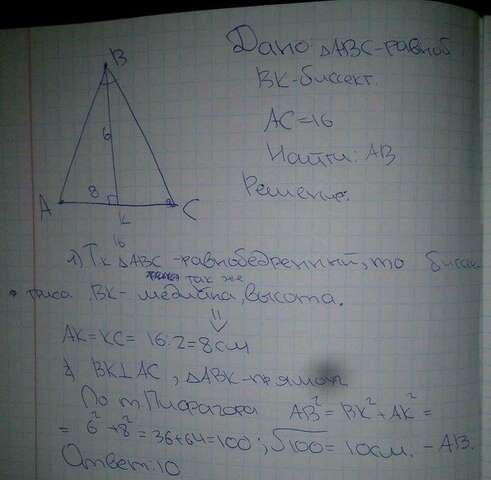 Дано ΔABC-равноб
BK-биссект.
AC=16
Найти: AB
Решение.
B
6
A 8 K C
16
1) Тк ΔABC-равнобедренный, то биссек
так же
триса BK- медиана, высота.
⇓
AK=KC= 16:2=8см
2) BK⊥AC, ΔABK-прямоуг
По т. Пифагора AB²=BK²+AK²=
= 6²+8²=36+64=100; √100=10см. -AB.
Ответ: 10